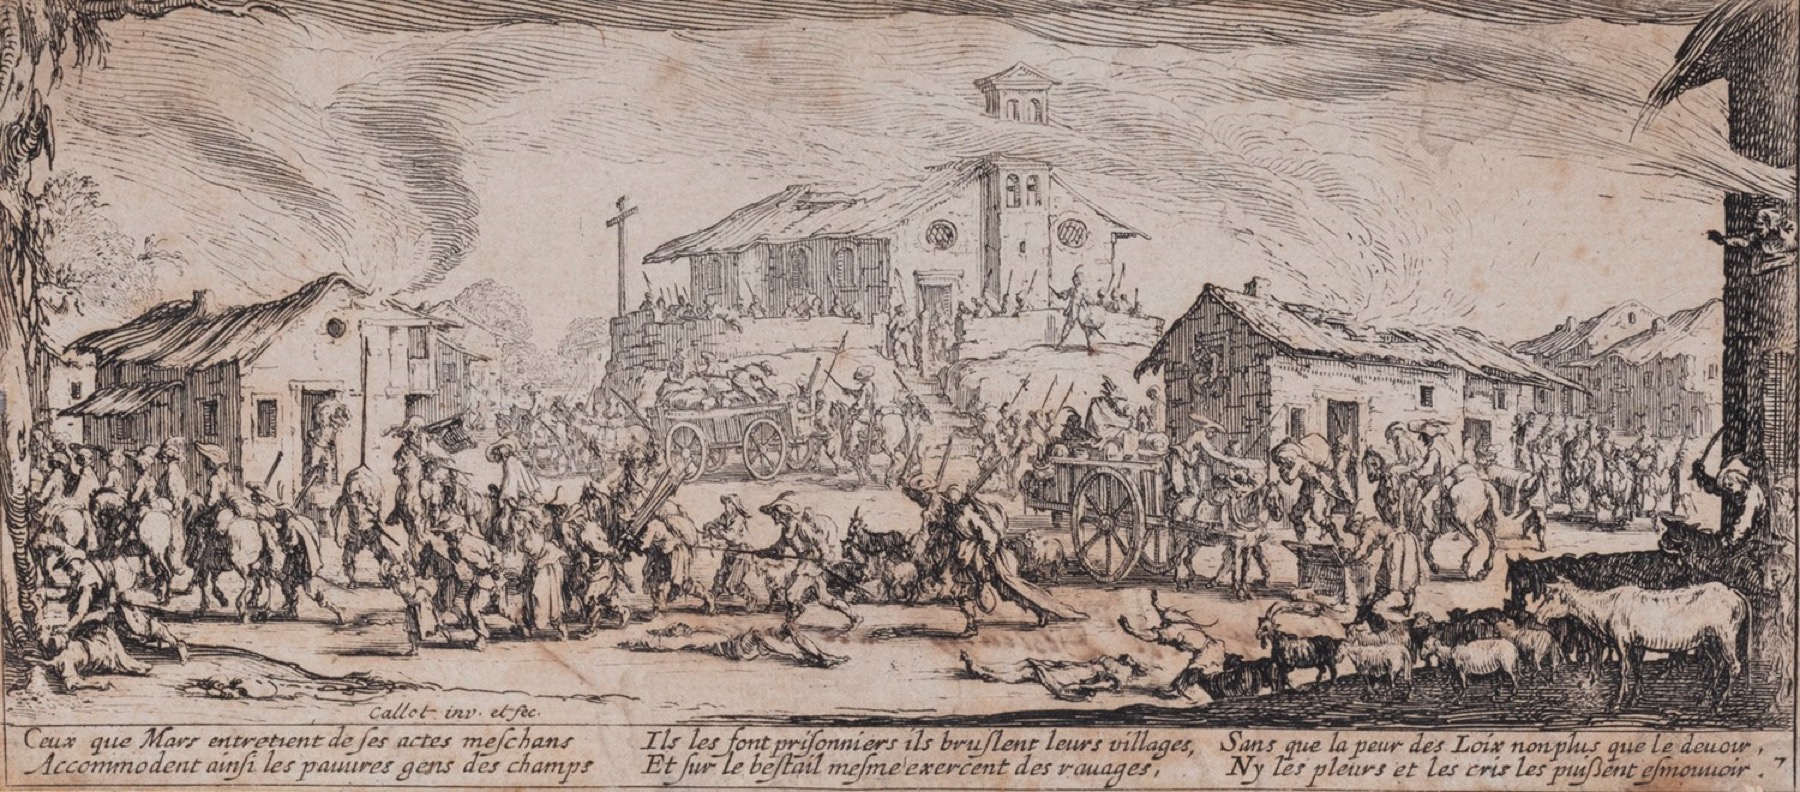 Callot inv. et fec.
Ceux que Mars entretient de ses actes meschans
Accommodent ainsi les pauures gens des champs
Ils les font prisonniers ils bruslent leurs villages,
Et sur le bestail mesme exercent des rauages,
Sans que la peur des Loix non plus que le deuoir,
Ny les pleurs et les cris les puissent esmouuoir.
7